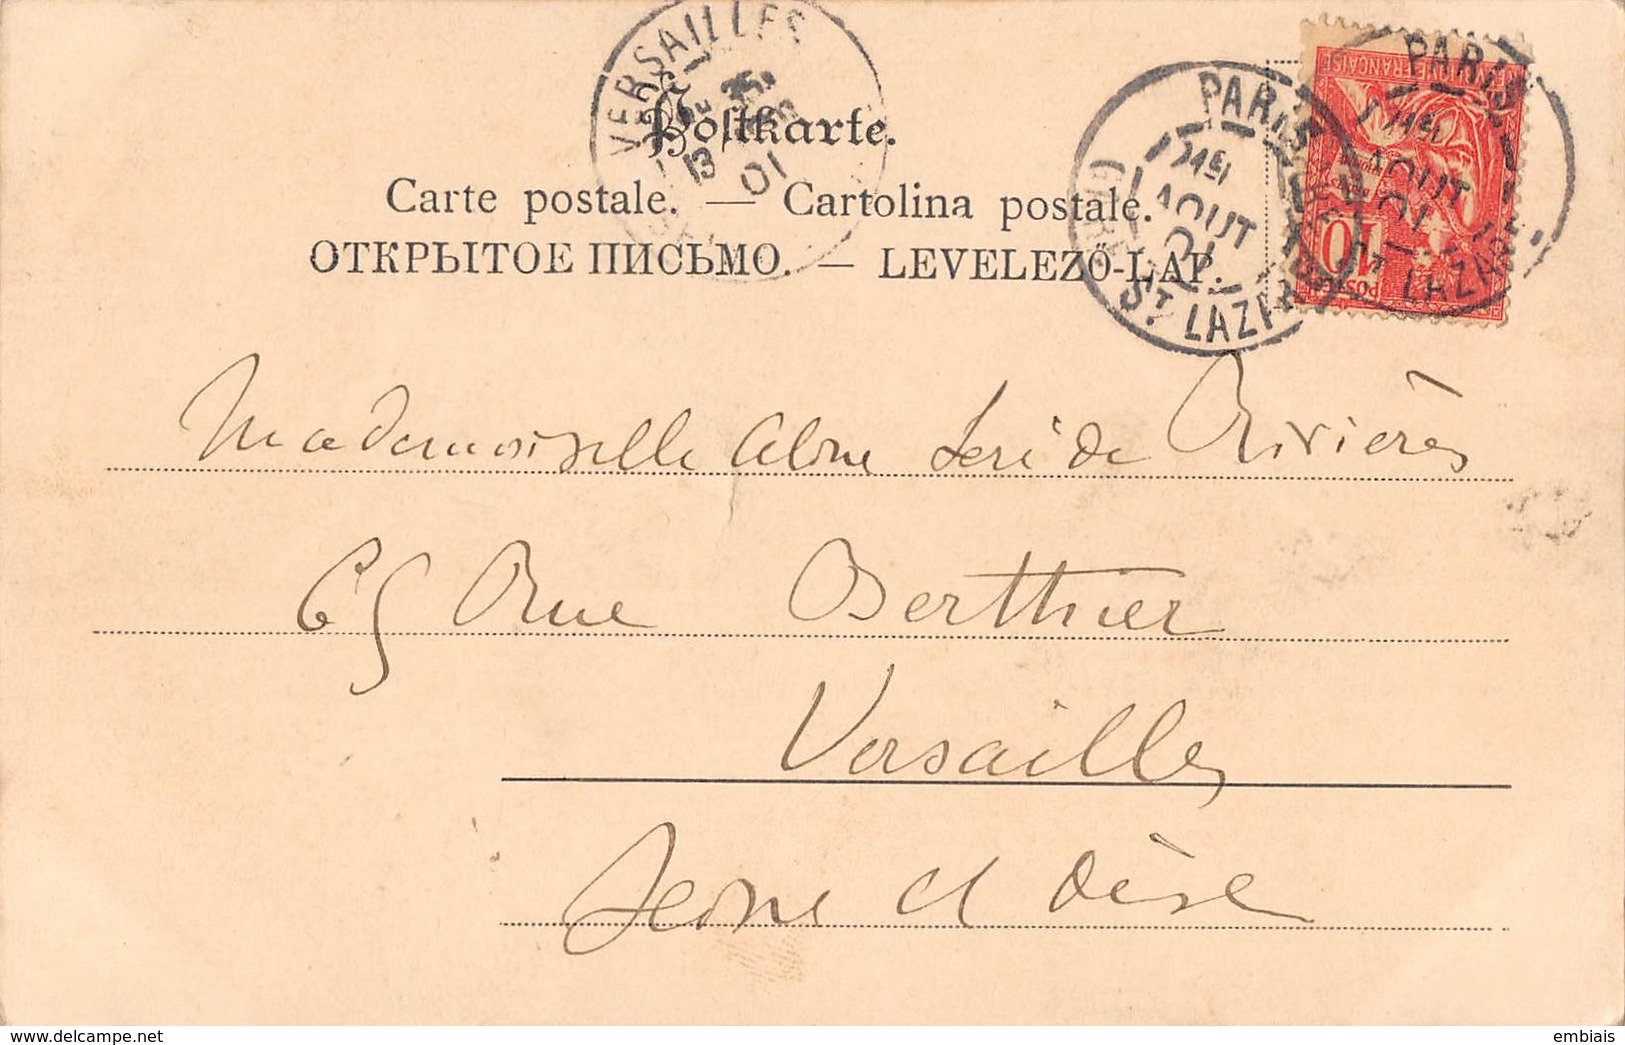 VERSAILLES
13
01
Postkarte.
Carte postale. — Cartolina postale.
ОТКРЫТОЕ ПИСЬМО. — LEVELEZÖ-LAP.
PARIS
AOUT
01
ST LAZARE
PARIS
AOUT
01
LAZARE
FRANÇAISE
10
POSTES
Mademoiselle Aline Seré de Rivières
65 Rue Berthier
Versailles
Seine et Oise
www.delcampe.net
embiais